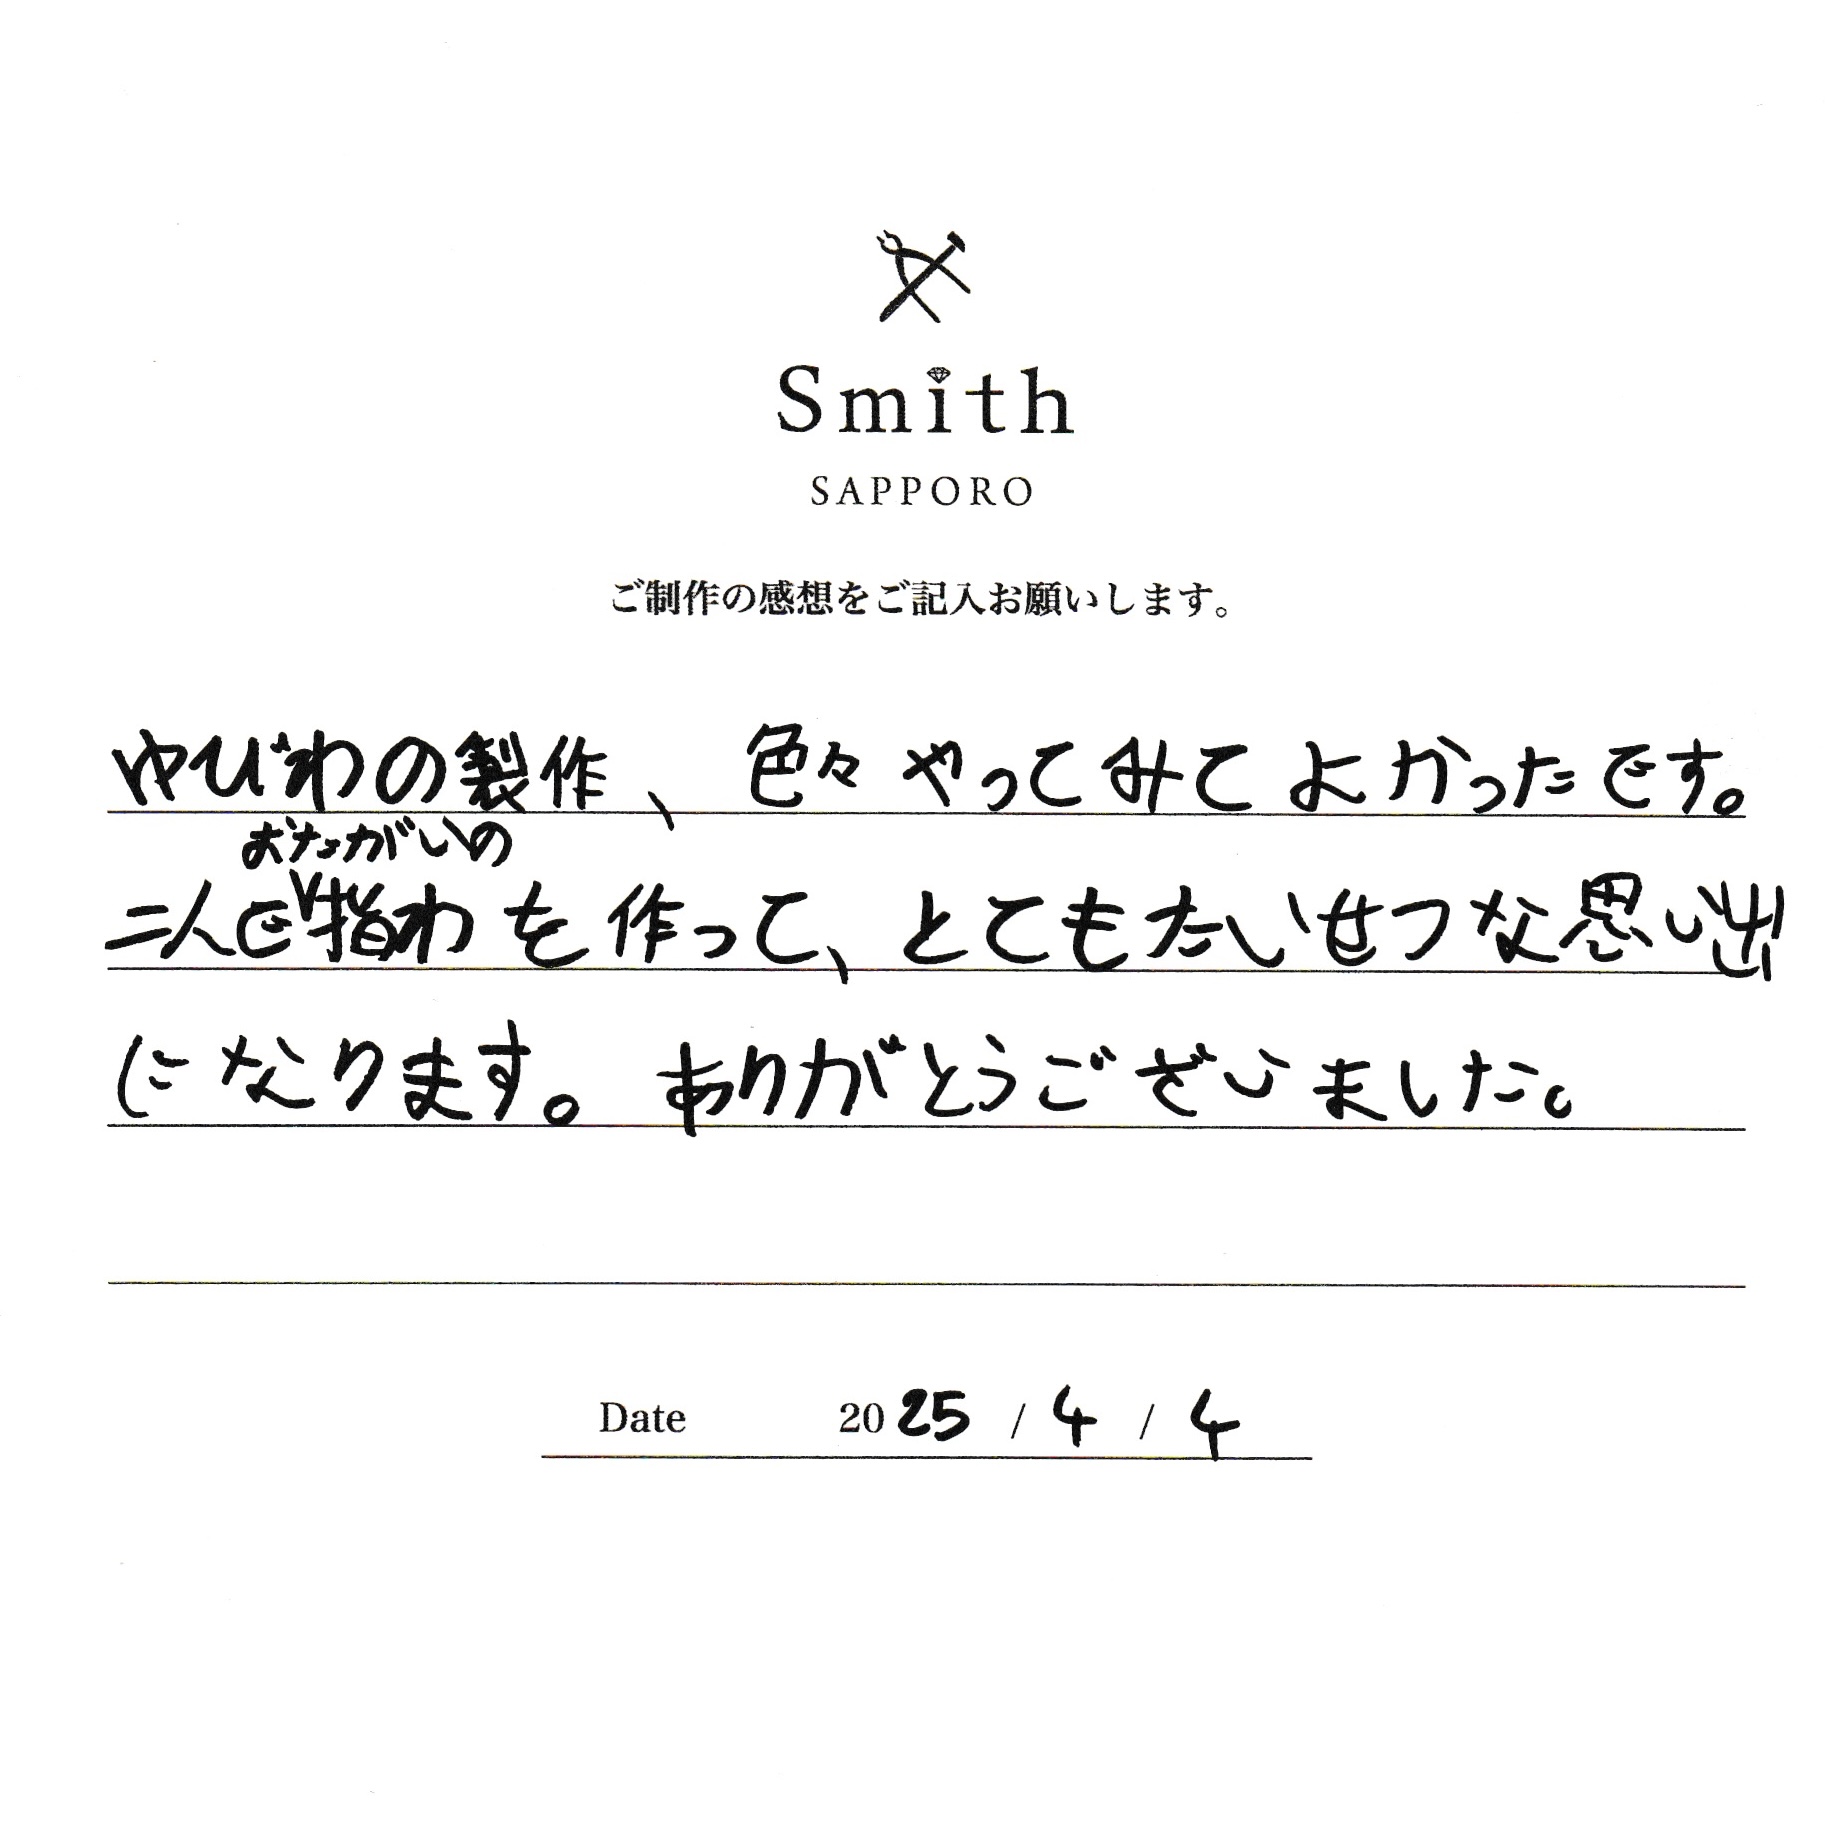 Smith
SAPPORO
ご制作の感想をご記入お願いします。
ゆびわの製作、色々やってみてよかったです。
おたがいの
二人で指わを作って、とてもたいせつな思い出
になります。ありがとうございました。
Date 2025 / 4 / 4